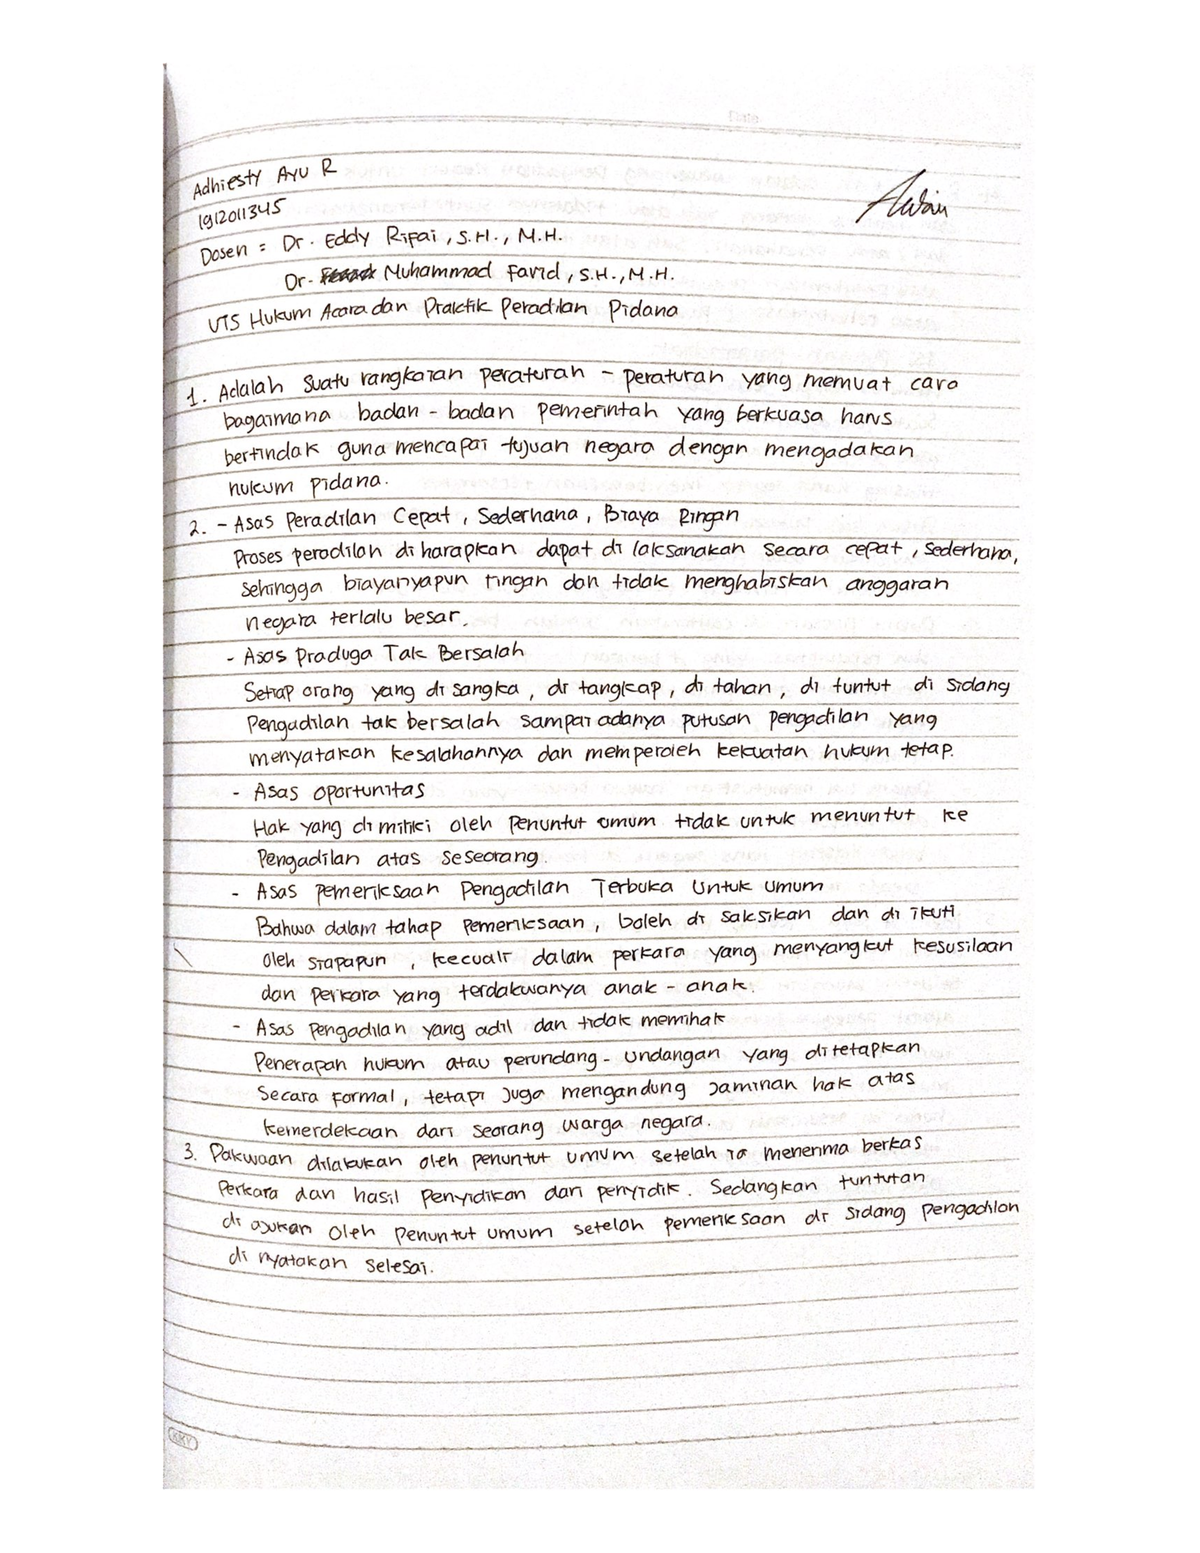 Date
Adhiesty Ayu R
1912011345
Dosen : Dr. Eddy Rifai, S.H., M.H.
Dr. Muhammad Farid, S.H., M.H.
UTS Hukum Acara dan Praktik Peradilan Pidana
1. Adalah suatu rangkaian peraturan - peraturan yang memuat cara
bagaimana badan - badan pemerintah yang berkuasa harus
bertindak guna mencapai tujuan negara dengan mengadakan
hukum pidana.
2. - Asas Peradilan Cepat, Sederhana, Biaya Ringan
Proses peradilan di harapkan dapat di laksanakan secara cepat, sederhana,
sehingga biayanyapun ringan dan tidak menghabiskan anggaran
negara terlalu besar.
- Asas Praduga Tak Bersalah
Setiap orang yang di sangka, di tangkap, di tahan, di tuntut di sidang
Pengadilan tak bersalah sampai adanya putusan pengadilan yang
menyatakan kesalahannya dan memperoleh kekuatan hukum tetap.
- Asas oportunitas
Hak yang di miliki oleh penuntut umum tidak untuk menuntut ke
Pengadilan atas seseorang.
- Asas pemeriksaan Pengadilan Terbuka Untuk Umum
Bahwa dalam tahap pemeriksaan, boleh di saksikan dan di ikuti
oleh siapapun, kecuali dalam perkara yang menyangkut kesusilaan
dan perkara yang terdakwanya anak - anak.
- Asas pengadilan yang adil dan tidak memihak
Penerapan hukum atau perundang - undangan yang ditetapkan
secara formal, tetapi juga mengandung jaminan hak atas
kemerdekaan dari seorang warga negara.
3. Dakwaan dilakukan oleh penuntut umum setelah ia menerima berkas
perkara dan hasil penyidikan dari penyidik. Sedangkan tuntutan
di ajukan oleh penuntut umum setelah pemeriksaan di sidang pengadilan
di nyatakan selesai.
KKY